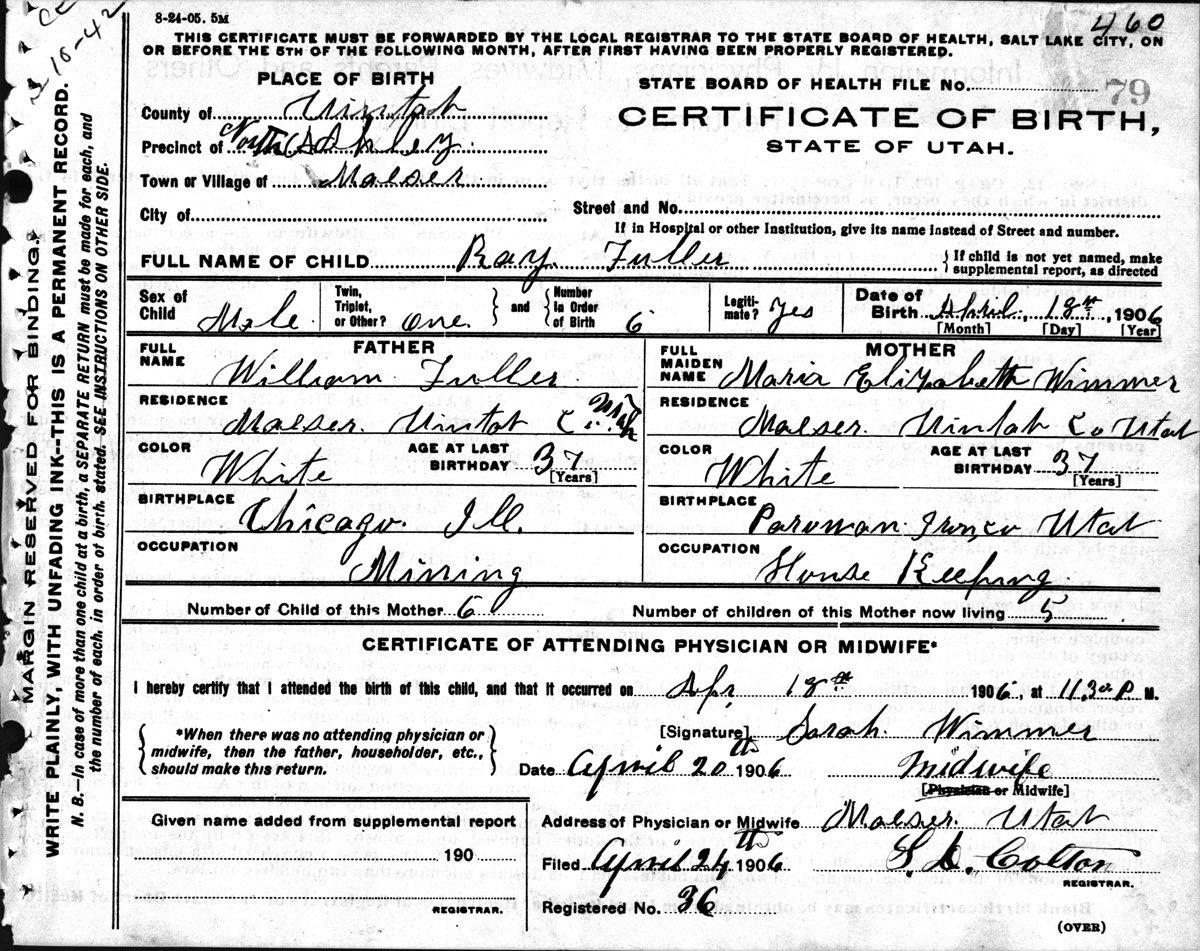 8-24-05. 5M
460
16-42
THIS CERTIFICATE MUST BE FORWARDED BY THE LOCAL REGISTRAR TO THE STATE BOARD OF HEALTH, SALT LAKE CITY, ON
OR BEFORE THE 5TH OF THE FOLLOWING MONTH, AFTER FIRST HAVING BEEN PROPERLY REGISTERED.
MARGIN RESERVED FOR BINDING.
WRITE PLAINLY, WITH UNFADING INK--THIS IS A PERMANENT RECORD.
N. B.—In case of more than one child at a birth, a SEPARATE RETURN must be made for each, and
the number of each, in order of birth, stated. SEE INSTRUCTIONS ON OTHER SIDE.
PLACE OF BIRTH
STATE BOARD OF HEALTH FILE No. 79
County of Uintah
CERTIFICATE OF BIRTH,
Precinct of North Ashley
STATE OF UTAH.
Town or Village of Maeser
City of
Street and No.
If in Hospital or other Institution, give its name instead of Street and number.
FULL NAME OF CHILD Ray Fuller
If child is not yet named, make
supplemental report, as directed
Sex of Child Male
Twin, Triplet, or Other? One
and
Number in Order of Birth 6
Legiti-mate? Yes
Date of Birth April 18th, 1906
[Month] [Day] [Year]
FATHER
MOTHER
FULL NAME William Fuller
FULL MAIDEN NAME Maria Elizabeth Wimmer
RESIDENCE Maeser. Uintah Co. Utah
RESIDENCE Maeser. Uintah Co Utah
COLOR White
AGE AT LAST BIRTHDAY 37
[Years]
COLOR White
AGE AT LAST BIRTHDAY 37
[Years]
BIRTHPLACE Chicago. Ill.
BIRTHPLACE Parowan Iron Co Utah
OCCUPATION Mining
OCCUPATION House Keeping
Number of Child of this Mother 6
Number of children of this Mother now living 5
CERTIFICATE OF ATTENDING PHYSICIAN OR MIDWIFE*
I hereby certify that I attended the birth of this child, and that it occurred on Apr, 18th 1906, at 1130 P M.
*When there was no attending physician or
midwife, then the father, householder, etc.,
should make this return.
[Signature] Sarah Wimmer
Date April 20th 1906
Midwife
[Physician or Midwife]
Given name added from supplemental report
190
REGISTRAR.
Address of Physician or Midwife Maeser. Utah
Filed April 24th 1906
S. D. Colton
REGISTRAR.
Registered No. 36
(OVER)